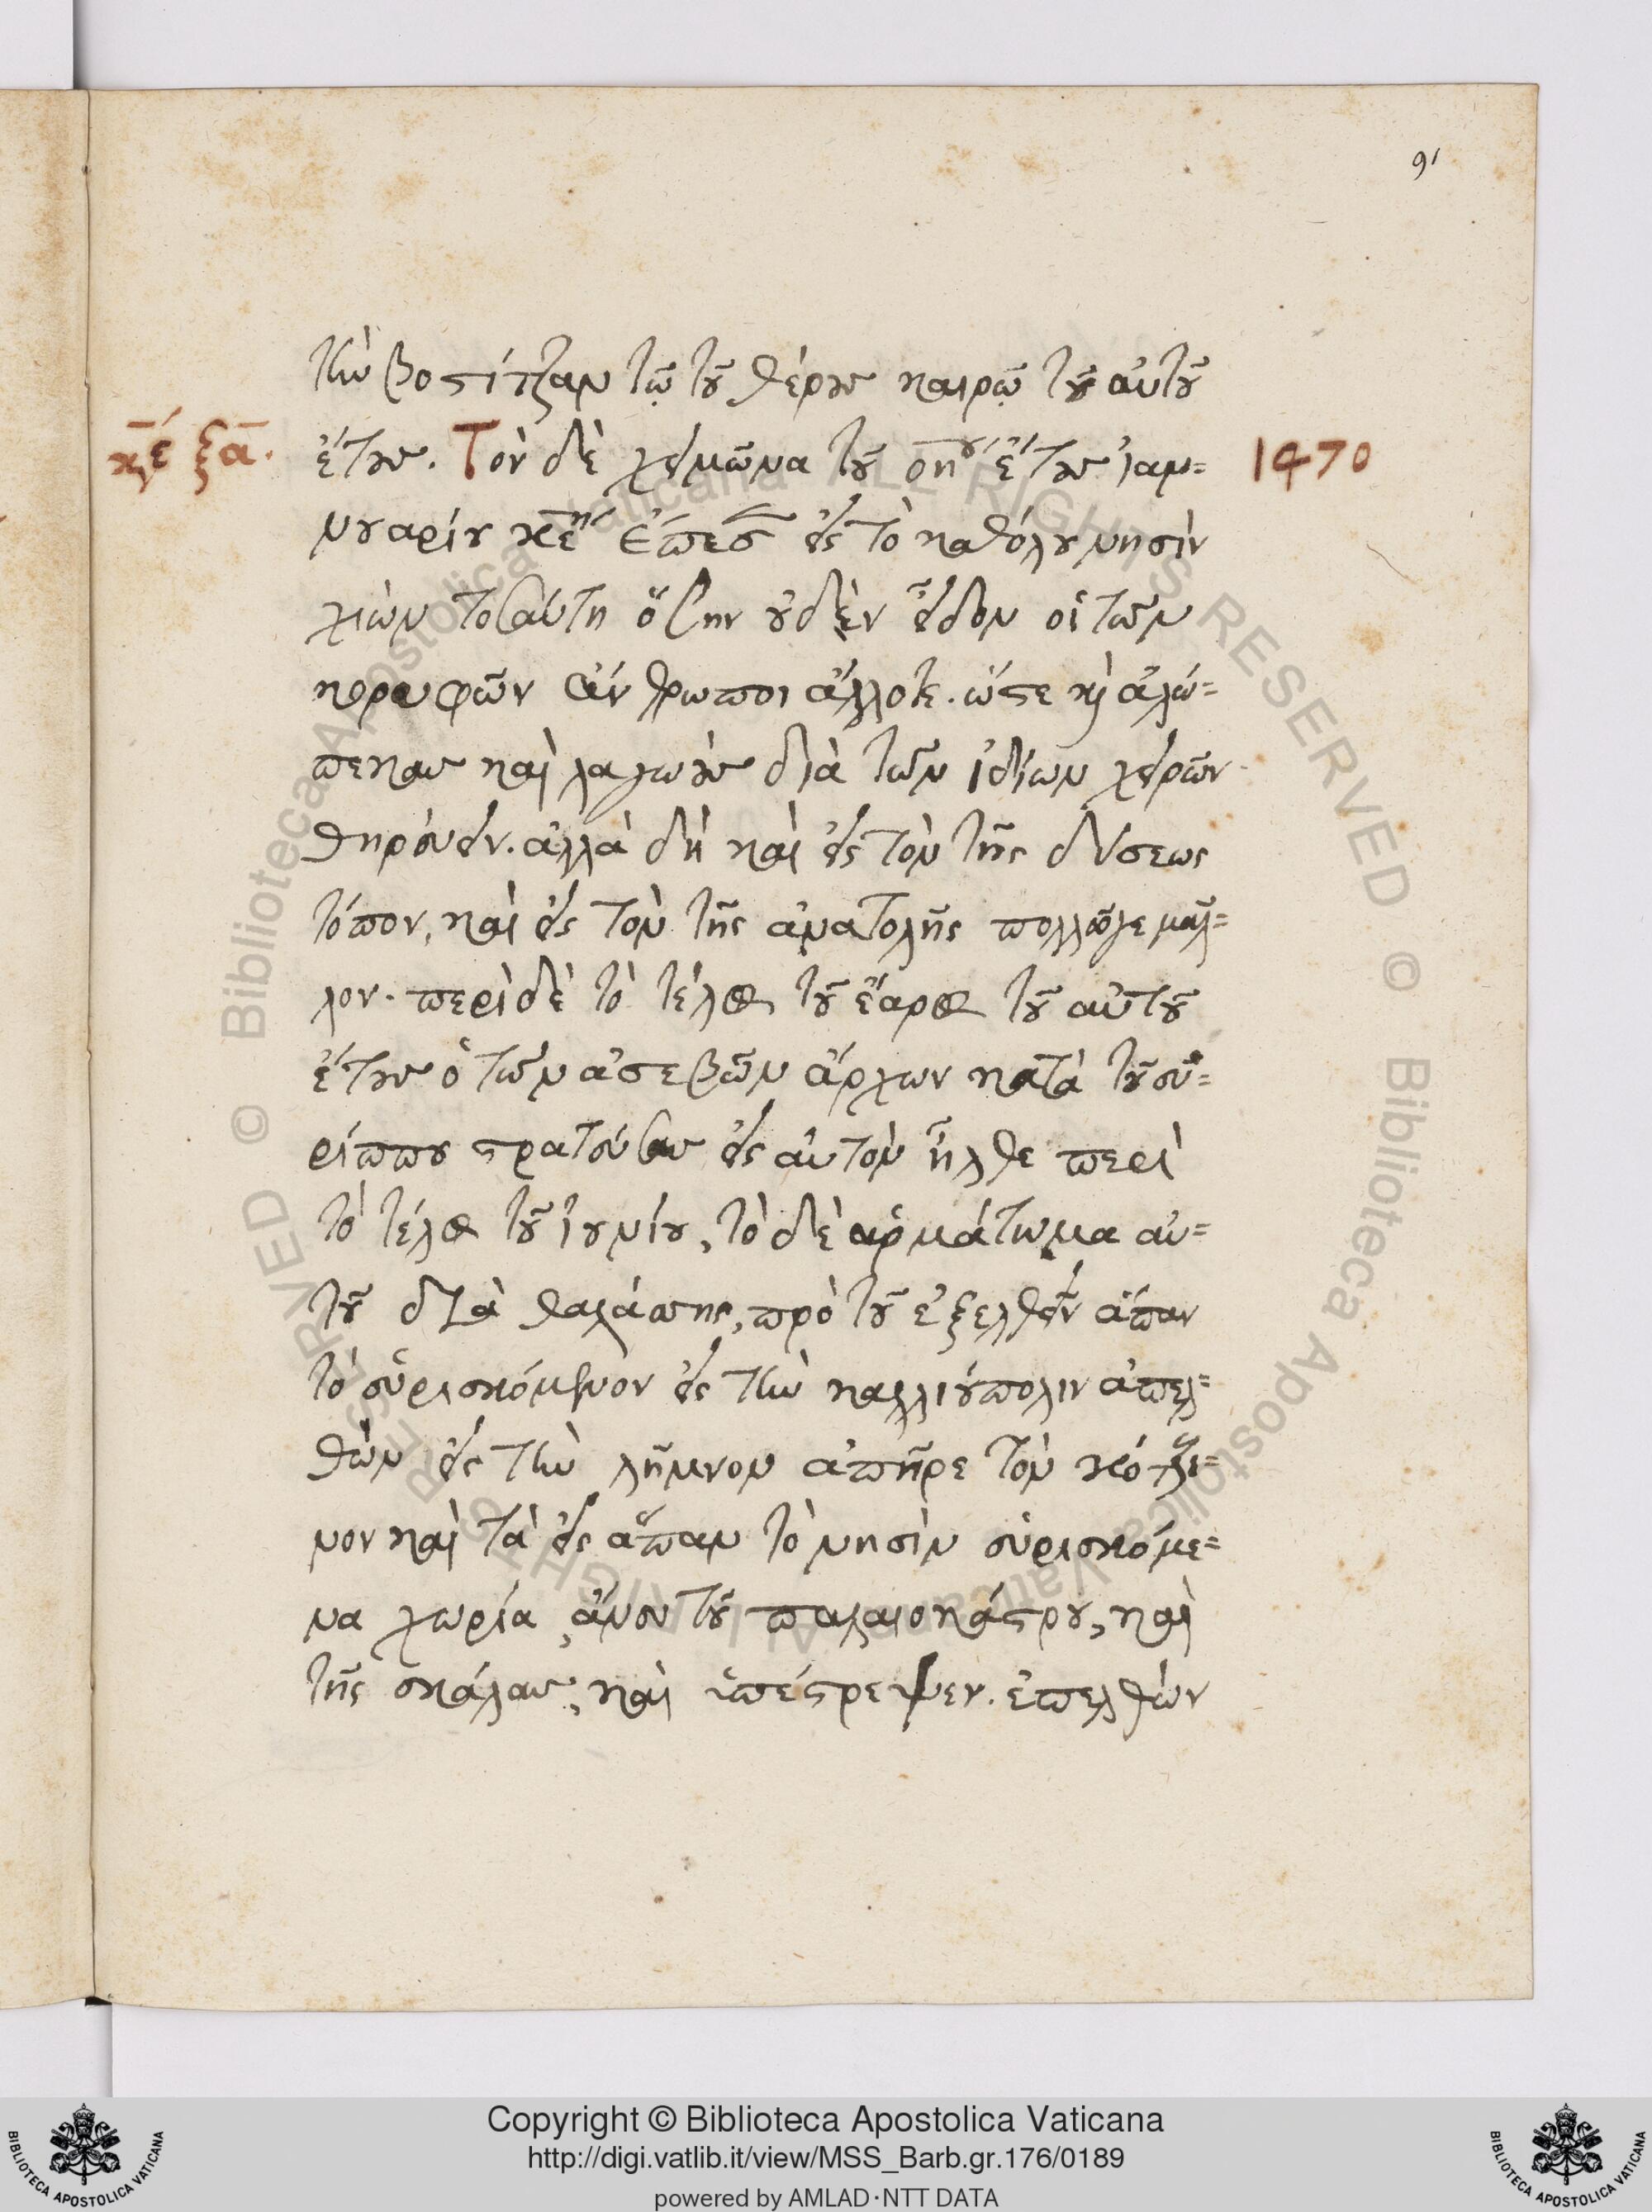 91
τὴν βοστίτζαν τῷ τοῦ θέρους καιρῷ τοῦ αὐτοῦ
κε´ ξα.
ἔτους. Τὸν δὲ χειμῶνα τοῦ οηου ἔτους ἰαν=
1470
νουαρίου κεῃ ἔπεσε εἰς τὸ καθόλου νησὶν
χιὼν τοσαύτη ὅσην οὐδὲν εἶδον οἱ τῶν
κορυφῶν ἄνθρωποι ἄλλοτε. ὥστε καὶ ἀλώ=
πεκας καὶ λαγωοὺς διὰ τῶν ἰδίων χειρῶν
θηρόυειν. ἀλλὰ δὴ καὶ εἰς τὸν τῆς δύσεως
τόπον, καὶ εἰς τὸν τῆς ἀνατολῆς πολλῶγε μᾶλ=
λον. περὶ δὲ τὸ τέλος τοῦ ἔαρος τοῦ αὐτοῦ
ἔτους ὁ τῶν ἀσεβῶν ἄρχων κατὰ τοῦ εὐ=
ρίππου στρατεύσας εἰς αὐτὸν ἦλθε περὶ
τὸ τέλος τοῦ ἰουνίου, τὸ δὲ ἁρμάτωμα αὐ=
τοῦ διὰ θαλάσσης, πρὸ τοῦ ἐξελθεῖν ἅπαν
τὸ εὑρισκόμενον εἰς τὴν καλλιούπολιν ἀπελ=
θὼν εἰς τὴν λῆμνον ἀπῆρε τὸν κότζι=
νον καὶ τὰ εἰς ἅπαν τὸ νησὶν εὑρισκόμε=
να χωρία, ἄνευ τοῦ παλαιοκάστρου, καὶ
τῆς σκάλας, καὶ ὑπέστρεψεν. ἐπελθὼν
Copyright © Biblioteca Apostolica Vaticana
http://digi.vatlib.it/view/MSS_Barb.gr.176/0189
powered by AMLAD·NTT DATA